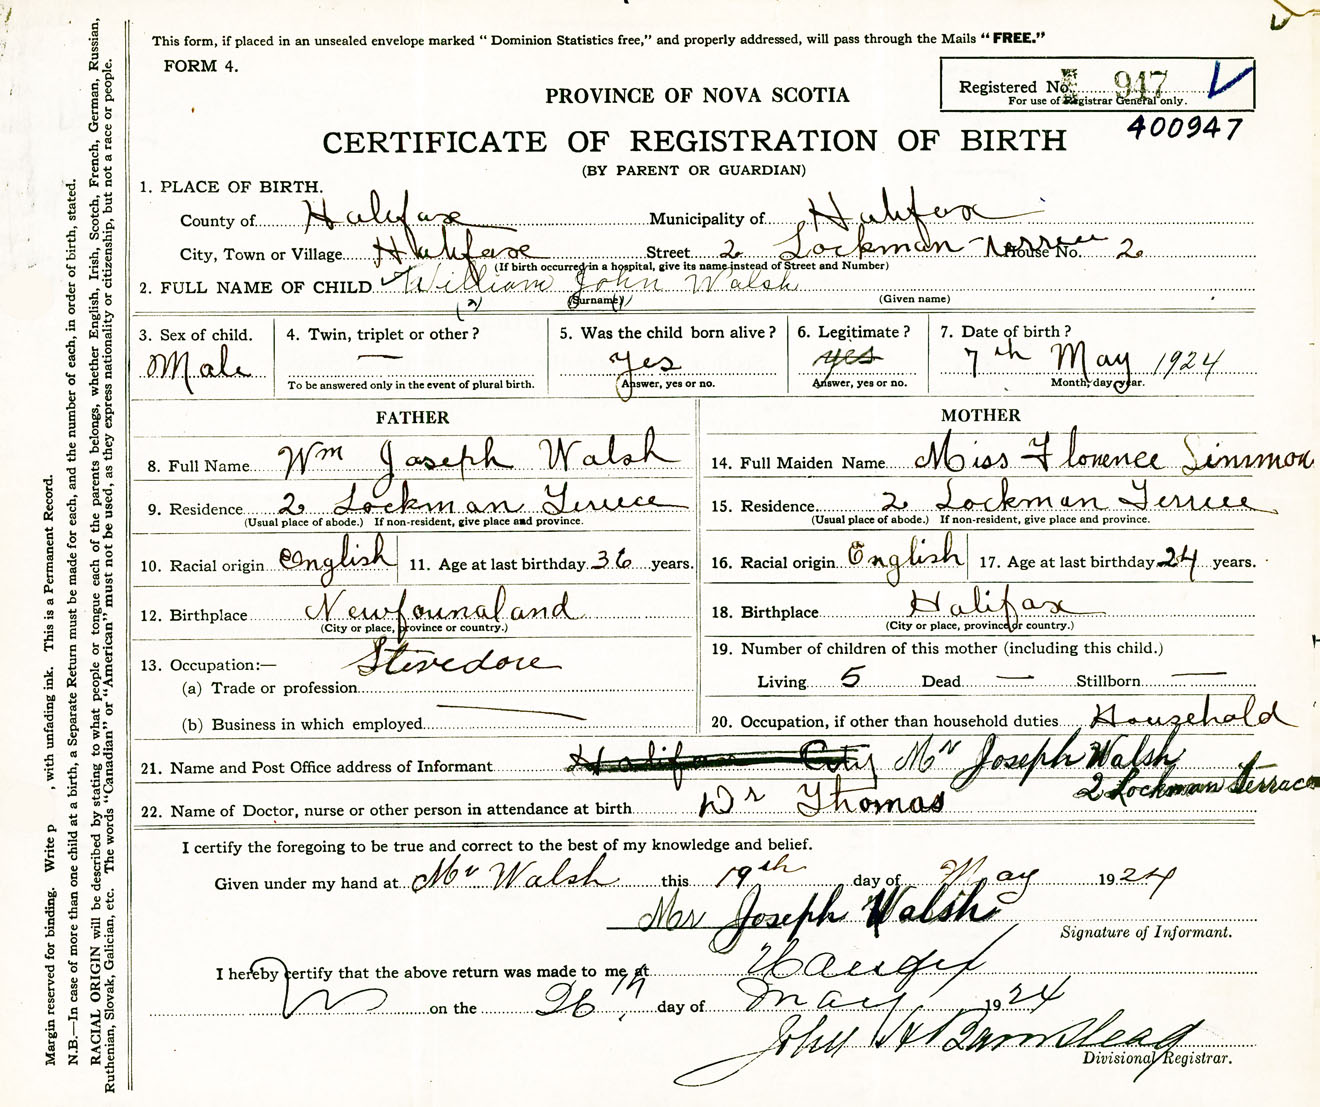 This form, if placed in an unsealed envelope marked “ Dominion Statistics free,” and properly addressed, will pass through the Mails “ FREE.”
FORM 4.
Registered No. 947
For use of Registrar General only.
400947
PROVINCE OF NOVA SCOTIA
CERTIFICATE OF REGISTRATION OF BIRTH
(BY PARENT OR GUARDIAN)
1. PLACE OF BIRTH.
County of Halifax Municipality of Halifax
City, Town or Village Halifax Street 2 Lockman Terrace House No. 2
(If birth occurred in a hospital, give its name instead of Street and Number)
2. FULL NAME OF CHILD William John Walsh
(Surname) (Given name)
3. Sex of child. 4. Twin, triplet or other ? 5. Was the child born alive ? 6. Legitimate ? 7. Date of birth ?
Male — yes yes 7th May 1924
To be answered only in the event of plural birth. Answer, yes or no. Answer, yes or no. Month, day, year.
FATHER MOTHER
8. Full Name Wm Joseph Walsh
14. Full Maiden Name Miss Florence
9. Residence 2 Lockman Terrece
(Usual place of abode.) If non-resident, give place and province.
15. Residence 2 Lockman Terrece
(Usual place of abode.) If non-resident, give place and province.
10. Racial origin English 11. Age at last birthday 36 years.
16. Racial origin English 17. Age at last birthday 24 years.
12. Birthplace Newfounaland
(City or place, province or country.)
18. Birthplace Halifax
(City or place, province or country.)
13. Occupation:— Stevedore
(a) Trade or profession
(b) Business in which employed —
19. Number of children of this mother (including this child.)
Living 5 Dead — Stillborn —
20. Occupation, if other than household duties Household
21. Name and Post Office address of Informant Halifax City Mr Joseph Walsh
2 Lockman Terrace
22. Name of Doctor, nurse or other person in attendance at birth Dr Thomas
I certify the foregoing to be true and correct to the best of my knowledge and belief.
Given under my hand at Mr Walsh this 19th day of May 1924
Mr Joseph Walsh
Signature of Informant.
I hereby certify that the above return was made to me at Halifax
on the 26th day of May 1924
John H Barnstead
Divisional Registrar.
Margin reserved for binding. Write p , with unfading ink. This is a Permanent Record.
N.B.—In case of more than one child at a birth, a Separate Return must be made for each, and the number of each, in order of birth, stated.
RACIAL ORIGIN will be described by stating to what people or tongue each of the parents belongs, whether English, Irish, Scotch, French, German, Russian,
Ruthenian, Slovak, Galician, etc. The words “Canadian” or “American” must not be used, as they express nationality or citizenship, but not a race or people.